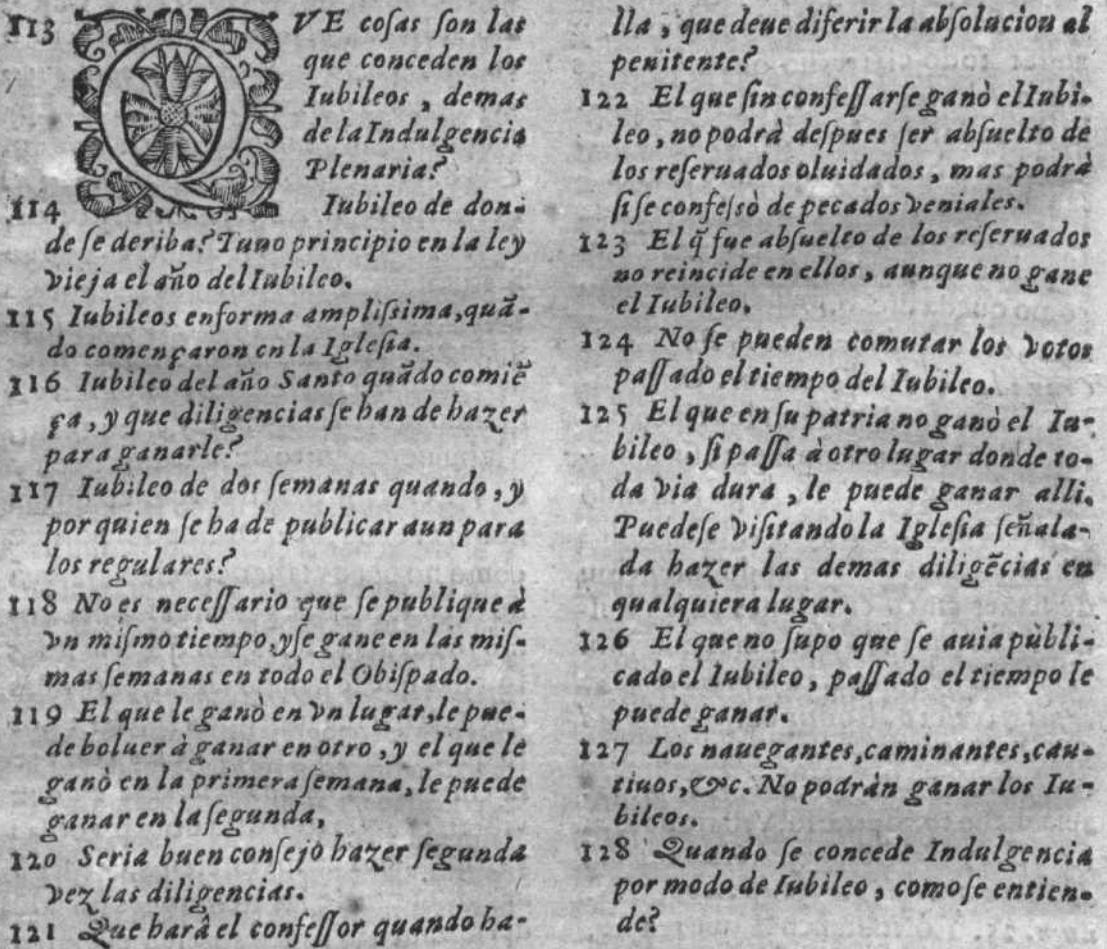 113 QVE coſas ſon las
que conceden los
Iubileos, demas
de la Indulgencia
Plenaria?
114 Iubileo de don-
de ſe deriba? Tuuo principio en la ley
vieja el año del Iubileo.
115 Iubileos en forma ampliſsima, quã-
do començaron en la Igleſia.
116 Iubileo del año Santo quãdo comiẽ
ça, y que diligencias ſe han de hazer
para ganarle?
117 Iubileo de dos ſemanas quando, y
por quien ſe ha de publicar aun para
los regulares?
118 No es neceſſario que ſe publique à
vn miſmo tiempo, y ſe gane en las miſ-
mas ſemanas en todo el Obiſpado.
119 El que le ganò en vn lugar, le pue-
de boluer à ganar en otro, y el que le
ganò en la primera ſemana, le puede
ganar en la ſegunda,
120 Seria buen conſejo hazer ſegunda
vez las diligencias.
121 Que harà el confeſſor quando ha-
lla, que deue diferir la abſolucion al
penitente?
122 El que ſin confeſſarſe ganò el Iubi-
leo, no podrà deſpues ſer abſuelto de
los reſeruados oluidados, mas podrà
ſi ſe confeſsò de pecados veniales.
123 El q̃ fue abſuelto de los reſeruados
no reincide en ellos, aunque no gane
el Iubileo.
124 No ſe pueden comutar los votos
paſſado el tiempo del Iubileo.
125 El que en ſu patria no ganò el Iu-
bileo, ſi paſſa à otro lugar donde to-
da via dura, le puede ganar alli.
Puedeſe viſitando la Igleſia ſeñala-
da hazer las demas diligẽcias en
qualquiera lugar.
126 El que no ſupo que ſe auia publi-
cado el Iubileo, paſſado el tiempo le
puede ganar.
127 Los nauegantes, caminantes, cau-
tiuos, &c. No podràn ganar los Iu-
bileos.
128 Quando ſe concede Indulgencia
por modo de Iubileo, como ſe entien-
de?